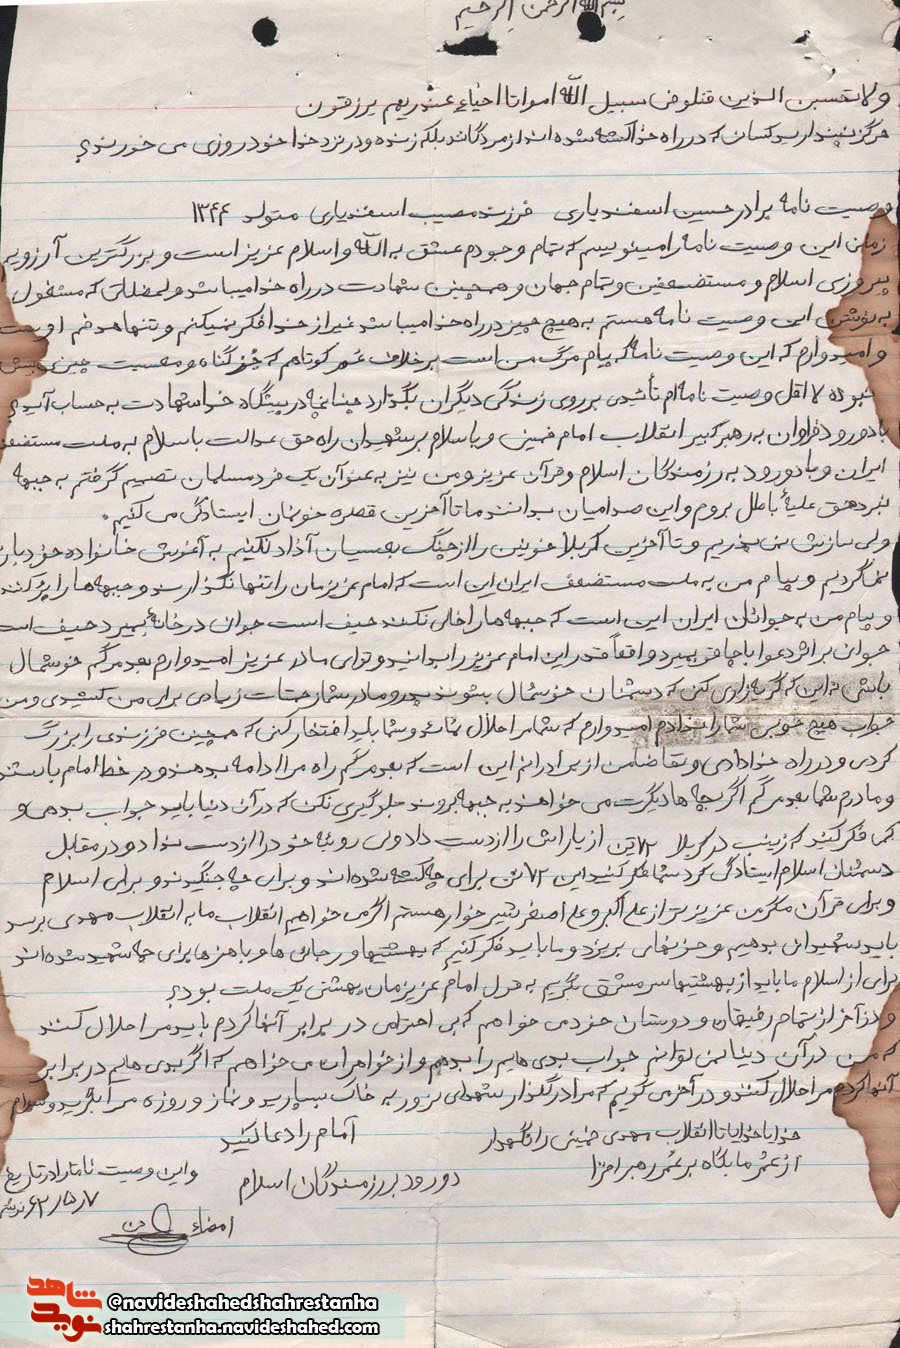 بسم الله الرحمن الرحیم
و لا تحسبن الذین قتلو فی سبیل الله امواتا احیاء عند ربهم یرزقون
هرگز نپندارید کسان که در راه خدا کشته شده اند از مردگانند بلکه زنده و در نزد خدا خود روزی می خورند؟
وصیت نامه برادر حسین اسفندیاری فرزند مصیب اسفندیاری متولد ۱۳۴۴
زمان این وصیت نامه را مینویسم که تمام وجودم عشق به الله و اسلام عزیز است و بزرگترین آرزویم
پیروزی اسلام و مستضعفین و تمام جهان و همچنین شهادت در راه خدا میباشد و لحظاتی که مشغول
به نوشتن این وصیت نامه هستم به هیچ چیز در راه خدا میباشد غیر از خدا فکر نمیکنم و تنها هدفم اوست
و امیدوارم که این وصیت نامه که پیام مرگ من است برخلاف عمر کوتاهم که جز گناه و معصیت چیزی بیش
نبوده لااقل وصیت نامه ام تأثیری بر روی زندگی دیگران بگذارد چنانچه در پیشگاه خدا شهادت به حساب آید؟
با درود فراوان به رهبر کبیر انقلاب امام خمینی و با سلام بر شهیدان راه حق عدالت با سلام به ملت مستضعف
ایران و با دورود به رزمندگان اسلام و قرآن عزیز و من نیز به عنوان یک فرد مسلمان تصمیم گرفتم به جبهه
نبرد حق علیۀ باطل بروم و این صدامیان بدانند ما تا آخرین قطره خونمان ایستادگی می کنیم.
ولی سازش نمی پذیریم و تا آخرین کربلا خونین را از چنگ بعسیان آذاد نکنیم به آغوش خانواده خود باز
نمی گردیم و پیام من به ملت مستضعف ایران این است که امام عزیزمان را تنها نگذارند و جبهه ها را پر کنند
و پیام من به جوانان ایران این است که جبهه ها را خالی نکنند حیف است جوان در خانه بمیرد حیف است
جوان بر اثر دعوا با چاقو بمیرد واقعاً قدر این امام عزیز را بدانید و تو ای مادر عزیز امیدوارم بعد مرگم خوشحال
باشی نه این که گریه زاری کنی که دشمنان خوشحال بشوند پدر و مادر شما زحمات زیادی برای من کشیدی و من
جواب هیچ خوبی شما را ندادم امیدوارم که شما مرا حلال نمائید و شما باید افتخار کنی که همچنین فرزندی را بزرگ
کردی و در راه خدا دادی و تقاضا من از برادرانم این است که بعد مرگم راه مرا ادامه بدهند و در خط امام باشند
و مادرم شما بعد مرگم اگر بچه ها دیگرت می خواهند به جبهه بروند جلوگیری نکن که در آن دنیا باید جواب بدهی و
کمی فکر کنید که زینب در کربلا ۷۲ تن از یارانش را از دست داد ولی روحیه خود را از دست نداد و در مقابل
دشمنان اسلام ایستادگی کرد شما فکر کنید این ۷۲ تن برای چه کشته شده اند و برای چه جنگیدند و برای اسلام
و برای قرآن مگر من عزیزتر از علی اکبر و علی اصغر شیر خوار هستم اگر می خواهیم انقلاب ما به انقلاب مهدی برسد
باید شهیدان بدهیم و خونهای بریزد و ما باید فکر کنیم که بهشتیها و رجائی ها و باهنرها برای چه شهید شده اند
برای از اسلام ما باید از بهشتیها سرمشق بگریم به قول امام عزیزمان بهشتی یک ملت بود؟
و در آخر از تمام رفیقان و دوستان خود می خواهم که بی احترامی در برابر آنها کردم باید مرا حلال کنند
که من در آن دنیا نمی توانم جواب بدی هایم را بدهم و از خواهران می خواهم که اگر بدی هایم در برابر
آنها کردم مرا حلال کنند و در آخر می گویم که مرا در گلذار شهدای نزور به خاک بسپارید و نماز و روزه مرا بگرید والسلام
خدایا خدایا تا انقلاب مهدی خمینی را نگهدار
از عمر ما بکاه بر عمر رهبر افزا
امام را دعا کنید
دورود بر رزمندگان اسلام
و این وصیت نامه را در تاریخ
۶۲/۵/۷
امضاء
شاهد
نوید
@navideshahedshahrestanha
shahrestanha.navideshahed.com